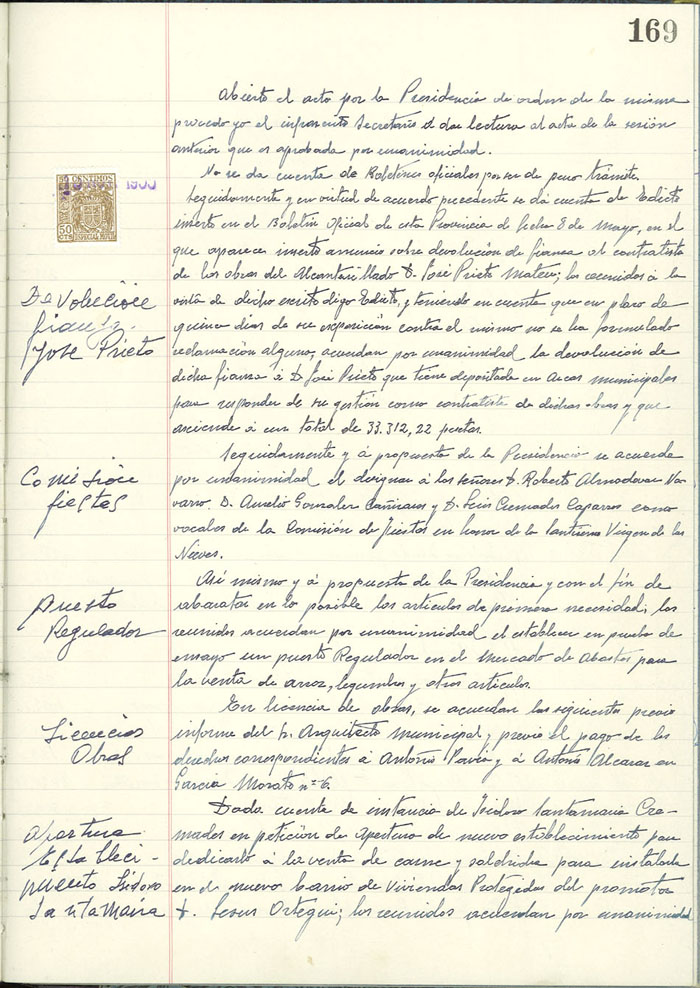 169
Abierto el acto por la Presidencia de orden de la misma
procedo yo el infrascrito Secretario a dar lectura al acta de la sesión
anterior que es aprobada por unanimidad.
No se da cuenta de Boletines oficiales por ser de puro trámite.
Seguidamente y en virtud de acuerdo precedente se dá cuenta de Edicto
inserto en el Boletín Oficial de esta Provincia de fecha 8 de Mayo, en el
que aparece inserto anuncio sobre devolución de fianza al contratista
de las obras del Alcantarillado D. José Prieto Mateu; los reunidos á la
vista de dicho escrito digo Edicto, y teniendo en cuenta que en plazo de
quince días de su exposición contra el mismo no se ha formulado
reclamación alguna, acuerdan por unanimidad la devolución de
dicha fianza á D. José Prieto que tiene depositada en arcas municipales
para responder de su gestión como contratista de dichas obras y que
asciende á un total de 33.312,22 pesetas.
Devolución
fianza
José Prieto
Seguidamente y á propuesta de la Presidencia se acuerda
por unanimidad el designar á los señores D. Roberto Almodovar Na-
varro. D. Aurelio Gonzalez Cañizares y D. Luis Cremades Caparros como
vocales de la Comisión de Fiestas en honor de la Santísima Virgen de las
Nieves.
Comisión
fiestas
Así mismo y á propuesta de la Presidencia y con el fin de
abaratar en lo posible los artículos de primera necesidad; los
reunidos acuerdan por unanimidad el establecer en prueba de
ensayo un puesto Regulador en el Mercado de Abastos para
la venta de arroz, legumbres y otros artículos.
Puesto
Regulador
En licencia de obras, se acuerdan las siguientes previo
informe del Sr. Arquitecto municipal y previo el pago de los
derechos correspondientes á Antonio Pavía y á Antonio Alcaraz en
Garcia Morato nº 6.
Licencias
Obras
Dada cuenta de instancia de Isidoro Santamaria Cre-
mades en petición de Apertura de nuevo establecimiento para
dedicarlo á la venta de carne y salchichas para instalarla
en el nuevo barrio de Viviendas Protegidas del promotor
D. Jesus Ortegui; los reunidos acuerdan por unanimidad
apertura
Estableci-
miento Isidoro
Santamaria
50
CTS
ESPECIAL MOVIL